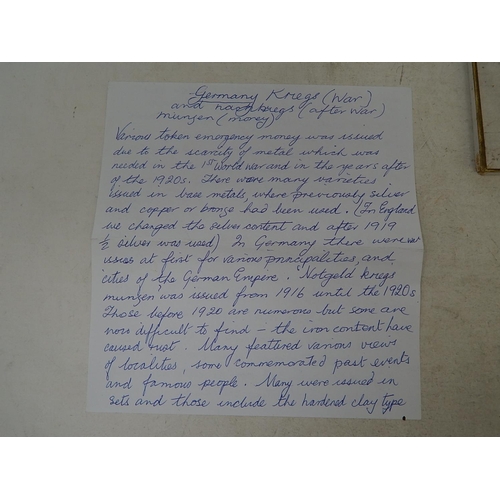 Germany Kriegs (War)
and nachkriegs (after war)
munzen (money)
Various token emergency money was issued
due to the scarcity of metal which was
needed in the 1st World war and in the years after
of the 1920s. There were many varieties
issued in base metals, where previously silver
and copper or bronze had been used. (In England
we changed the silver content and after 1919
½ silver was used) In Germany there were war
issues at first for various principalities, and
cities of the German Empire. Notgeld kriegs
munzen was issued from 1916 until the 1920s
Those before 1920 are numerous but some are
now difficult to find - the iron content have
caused rust. Many featured various views
of localities, some commemorated past events
and famous people. Many were issued in
sets and those include the hardened clay type